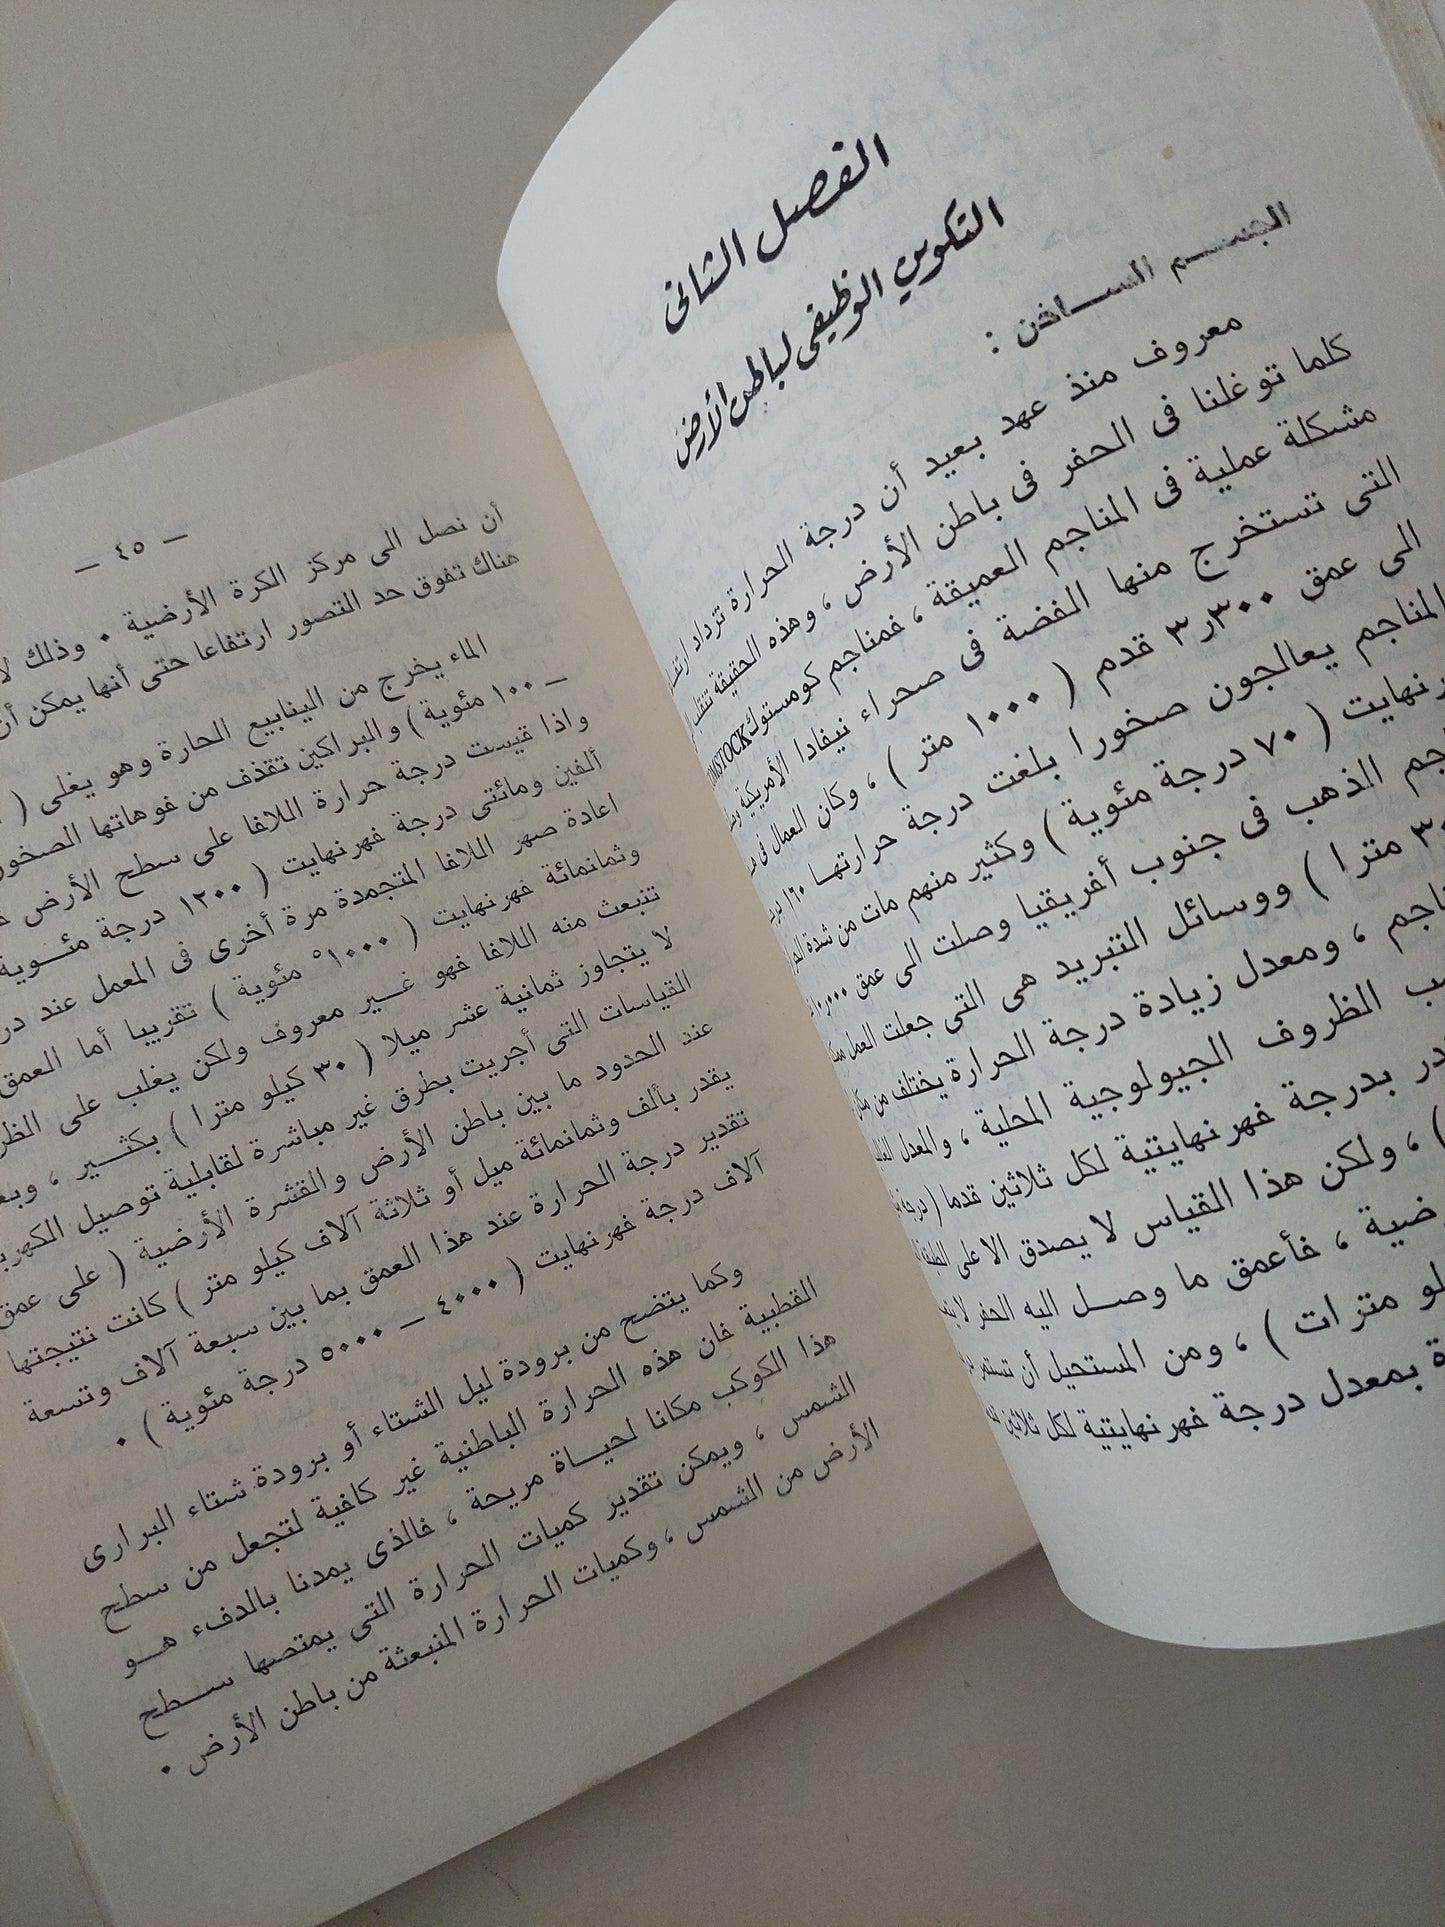 الفصل الثانى
التكوين الوظيفى لباطن الأرض
الجسم الساخن :
معروف منذ عهد بعيد أن درجة الحرارة تزداد
كلما توغلنا فى الحفر فى باطن الأرض ، وهذه الحقيقة تتقلب
مشكلة عملية فى المناجم العميقة ، فمناجم كومستوك OMSTOCK
التى تستخرج منها الفضة فى صحراء نيفادا الأمريكية
الى عمق ٣٠٠ر٣ قدم ( ١٠٠٠ متر ) ، وكان العمال فى
المناجم يعالجون صخورا بلغت درجة حرارتها ١٦٠
( ٧٠ درجة مئوية ) وكثير منهم مات من شدة
الذهب فى جنوب أفريقيا وصلت الى عمق
مترا ) ووسائل التبريد هى التى جعلت العمل
، ومعدل زيادة درجة الحرارة يختلف من مكان
الظروف الجيولوجية المحلية ، والمعدل
بدرجة فهرنهايتية لكل ثلاثين قدما (
) ، ولكن هذا القياس لا يصدق الا على
، فأعمق ما وصل اليه الحفر لا
مترات ) ، ومن المستحيل أن تستمر
بمعدل درجة فهرنهايتية لكل ثلاثين
— ٤٥ —
أن نصل الى مركز الكرة الأرضية . وذلك
هناك تفوق حد التصور ارتفاعا حتى أنها يمكن
الماء يخرج من الينابيع الحارة وهو يغلى (
— ١٠٠ مئوية ) والبراكين تقذف من فوهاتها
واذا قيست درجة حرارة اللافا على سطح الأرض
ألفين ومائتى درجة فهرنهايت ( ١٢٠٠ درجة مئوية
اعادة صهر اللافا المتجمدة مرة أخرى فى المعمل عند
وثمانمائة فهرنهايت ( ١٠٠٠° مئوية ) تقريبا أما العمق
تنبعث منه اللافا فهو غير معروف ولكن يغلب على
لا يتجاوز ثمانية عشر ميلا ( ٣٠ كيلو مترا ) بكثير ،
القياسات التى أجريت بطرق غير مباشرة لقابلية توصيل
عند الحدود ما بين باطن الأرض والقشرة الأرضية ( على عمق
يقدر بألف وثمانمائة ميل أو ثلاثة آلاف كيلو متر ) كانت نتيجتها
تقدير درجة الحرارة عند هذا العمق بما بين سبعة آلاف وتسعة
آلاف درجة فهرنهايت ( ٤٠٠٠ — ٥٠٠٠ درجة مئوية ) .
وكما يتضح من برودة ليل الشتاء أو برودة شتاء البرارى
القطبية فان هذه الحرارة الباطنية غير كافية لتجعل من سطح
هذا الكوكب مكانا لحياة مريحة ، فالذى يمدنا بالدفء هو
الشمس ، ويمكن تقدير كميات الحرارة التى يمتصها سطح
الأرض من الشمس ، وكميات الحرارة المنبعثة من باطن الأرض .